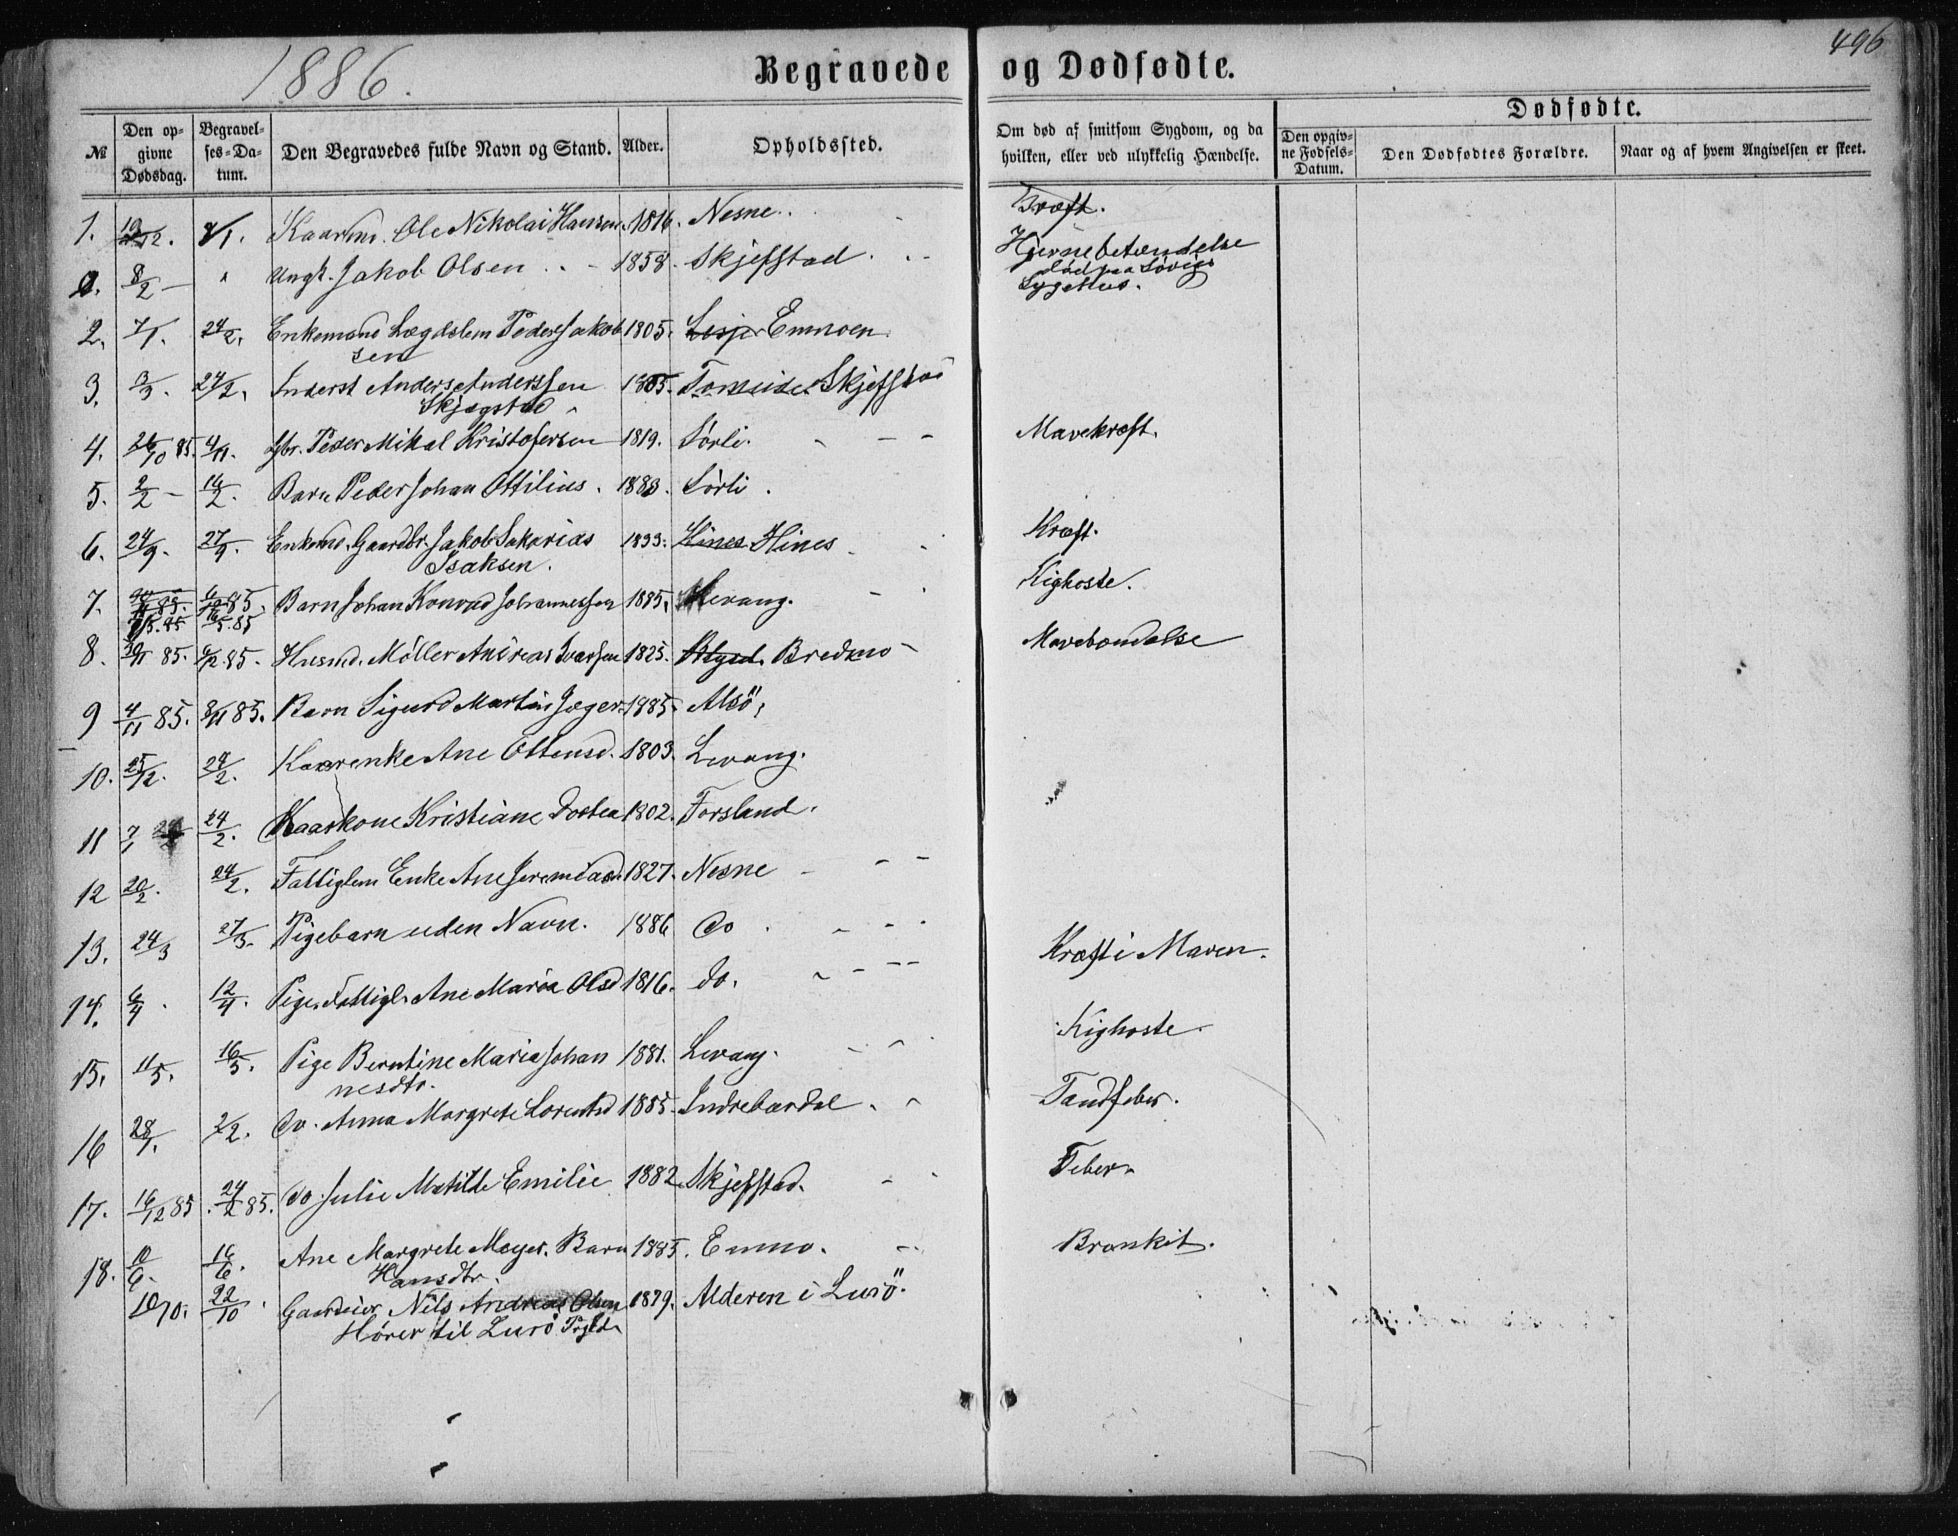 1886.
496
Begravede og Dødfødte.
Dødfødte.
№
Den opgivne Dødsdag.
Begravelses-Datum.
Den Begravedes fulde Navn og Stand.
Alder.
Opholdssted.
Om død af smitsom Sygdom, og da hvilken, eller ved ulykkelig Hændelse.
Den opgivne Fødsels-Datum.
Den Dødfødtes Forældre.
Naar og af hvem Angivelsen er skeet.
1. Ole Nikolai Hansen 1816. Nesne. Kræft.
8/2 – " Ungk. Jakob Olsen 1858. Skjefstad. Hjernebetændelse
død paa Søvigs
Sygehus.
2. 7/1. 24/2. Enkemand Lægdslem Peder Jakob 1805. Emmoen.
sen
3. 24/2. Inderst Anders Anderssen Tomeide Skjefstad
4. 26/10 85. 4/11. Peder Mikal Kristofersen 1819. Sørli. Mavekræft.
5. 2/2 – 14/2. Barn Peder Johan Ottilius. 1883. Sørli.
6. 24/9. 27/9. Enkemd. Gaardbr. Jakob Sakarias 1833. Hines Hines Kræft.
Isaksen.
7. Barn Johan Konrad Johannessen 1885. Levang. Kighoste.
8. 85. 6/12 85. Husmd. Møller Andreas Ivarsen 1825. Bredmo
9 4/11 85. 8/11 85. Barn Sigurd Martin Jæger. 1885. Alsö,
10. 25/12. 24/2. Kaarenke Ane Ottensd. 1803. Levang.
11 7/1 24/2. Kaarkone Kristiane Dortea 1802. Forsland.
12 20/2. 24/2. Fattiglem Enke Ane Jeremiasd. 1827. Nesne
13. 24/3 27/3. Pigebarn uden Navn. 1886 Do
14. 6/4. 12/4. Pige. Fattigl. Ane Maria Olsd 1816. do. Kræft i Maven.
15. 11/5. 16/5. Pige Berntine Maria Johan 1881. Levang. Kighoste.
nesdtr.
16 28/1. 2/2. Do. Anna Margrete Lorentsd 1885. Indrebardal. Tandfeber.
17. 16/12 85. 24/2 85. Do. Julie Matilde Emilie 1882 Skjefstad. Feber.
18. 10/6. 14/6. Ane Margrete Meyer. Barn 1885. Emmo. Bronkit.
Hansdtr.
22/10. Gaardeier Nils Andreas Olsen Alderen i Lurö.
Hører til Lurö Prgld.